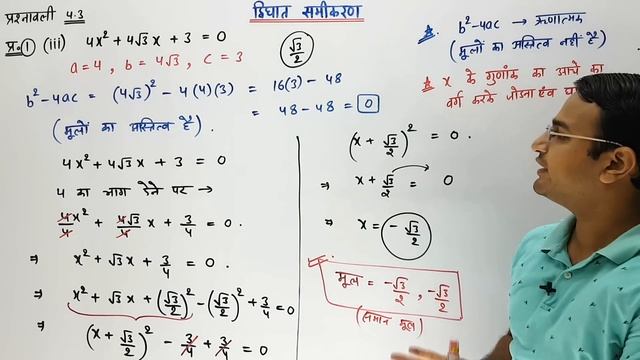 प्रश्नावली 4.3
द्विघात समीकरण
प्र.1 (iii) 4x² + 4√3x + 3 = 0
a = 4, b = 4√3, c = 3
√3/2
b² - 4ac = (4√3)² - 4(4)(3) = 16(3) - 48
= 48 - 48 = 0
(मूलों का अस्तित्व है).
4x² + 4√3x + 3 = 0
4 का भाग देने पर →
4x²/4 + 4√3/4 x + 3/4 = 0.
⇒ x² + √3x + 3/4 = 0.
⇒ x² + √3x + (√3/2)² - (√3/2)² + 3/4 = 0
⇒ (x + √3/2)² - 3/4 + 3/4 = 0
(x + √3/2)² = 0.
⇒ x + √3/2 = 0
⇒ x = -√3/2
मूल = -√3/2, -√3/2
(समान मूल)
b² - 4ac → ऋणात्मक
(मूलों का अस्तित्व नहीं है)
x के गुणांक का आधे का
वर्ग करके जोडना एवं